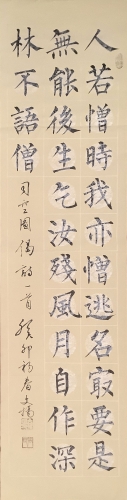 人若憎時我亦憎逃名㝡要是
無能後生乞汝殘風月自作深
林不語僧
司空圖偶詩一首 癸卯初春